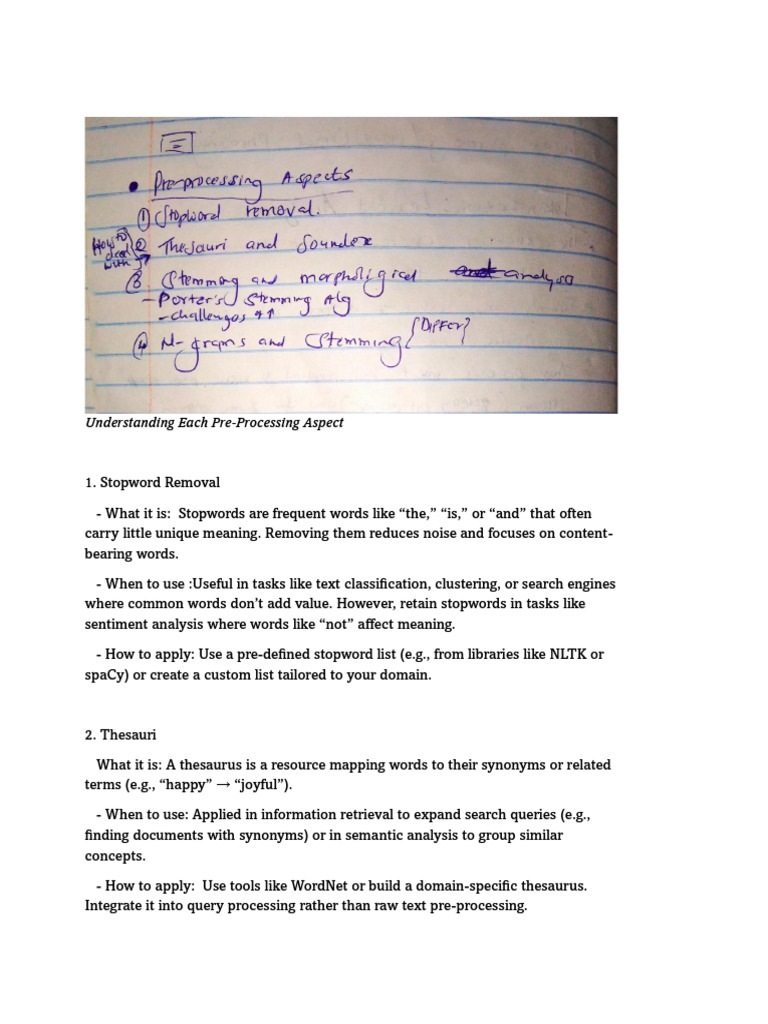 Pre-processing Aspects
① Stopword removal.
How to deal with
② Thesauri and Soundex
③ Stemming and morpholigical analysis
- Porter's Stemming Alg
- challenges ↑↑
④ N-grams and Stemming {Differ}
Understanding Each Pre-Processing Aspect
1. Stopword Removal
- What it is:  Stopwords are frequent words like “the,” “is,” or “and” that often
carry little unique meaning. Removing them reduces noise and focuses on content-
bearing words.
- When to use :Useful in tasks like text classification, clustering, or search engines
where common words don’t add value. However, retain stopwords in tasks like
sentiment analysis where words like “not” affect meaning.
- How to apply: Use a pre-defined stopword list (e.g., from libraries like NLTK or
spaCy) or create a custom list tailored to your domain.
2. Thesauri
What it is: A thesaurus is a resource mapping words to their synonyms or related
terms (e.g., “happy” → “joyful”).
- When to use: Applied in information retrieval to expand search queries (e.g.,
finding documents with synonyms) or in semantic analysis to group similar
concepts.
- How to apply:  Use tools like WordNet or build a domain-specific thesaurus.
Integrate it into query processing rather than raw text pre-processing.